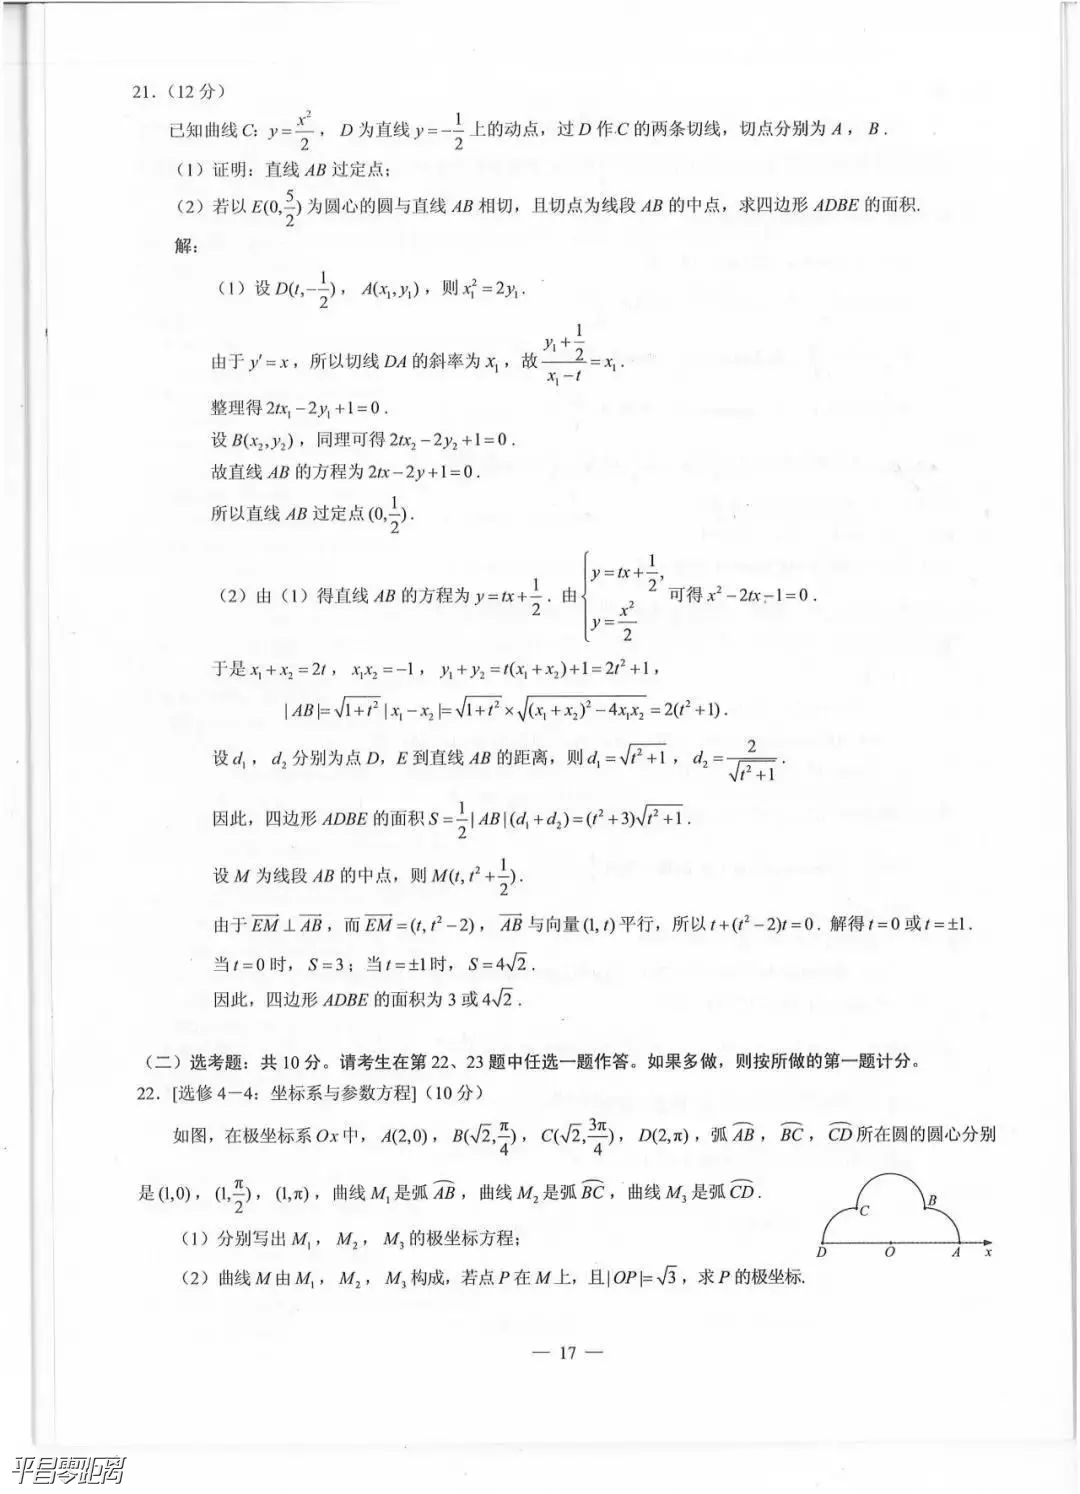 21.（12 分）
已知曲线 C: y=x²/2，D 为直线 y=-1/2 上的动点，过 D 作 C 的两条切线，切点分别为 A，B.
（1）证明：直线 AB 过定点；
（2）若以 E(0,5/2) 为圆心的圆与直线 AB 相切，且切点为线段 AB 的中点，求四边形 ADBE 的面积.
解：
（1）设 D(t,-1/2)，A(x₁,y₁)，则 x₁²=2y₁.
由于 y′=x，所以切线 DA 的斜率为 x₁，故 (y₁+1/2)/(x₁-t)=x₁.
整理得 2tx₁-2y₁+1=0.
设 B(x₂,y₂)，同理可得 2tx₂-2y₂+1=0.
故直线 AB 的方程为 2tx-2y+1=0.
所以直线 AB 过定点 (0,1/2).
（2）由（1）得直线 AB 的方程为 y=tx+1/2. 由 { y=tx+1/2, y=x²/2 可得 x²-2tx-1=0.
于是 x₁+x₂=2t，x₁x₂=-1，y₁+y₂=t(x₁+x₂)+1=2t²+1，
|AB|=√(1+t²)|x₁-x₂|=√(1+t²)×√((x₁+x₂)²-4x₁x₂)=2(t²+1).
设 d₁，d₂ 分别为点 D，E 到直线 AB 的距离，则 d₁=√(t²+1)，d₂=2/√(t²+1).
因此，四边形 ADBE 的面积 S=1/2|AB|(d₁+d₂)=(t²+3)√(t²+1).
设 M 为线段 AB 的中点，则 M(t,t²+1/2).
由于 EM⊥AB，而 EM=(t,t²-2)，AB 与向量 (1,t) 平行，所以 t+(t²-2)t=0. 解得 t=0 或 t=±1.
当 t=0 时，S=3；当 t=±1 时，S=4√2.
因此，四边形 ADBE 的面积为 3 或 4√2.
（二）选考题：共 10 分。请考生在第 22、23 题中任选一题作答。如果多做，则按所做的第一题计分。
22. [选修 4－4：坐标系与参数方程]（10 分）
如图，在极坐标系 Ox 中，A(2,0)，B(√2,π/4)，C(√2,3π/4)，D(2,π)，弧 AB，BC，CD 所在圆的圆心分别
是 (1,0)，(1,π/2)，(1,π)，曲线 M₁ 是弧 AB，曲线 M₂ 是弧 BC，曲线 M₃ 是弧 CD.
C B
（1）分别写出 M₁，M₂，M₃ 的极坐标方程；
D O A x
（2）曲线 M 由 M₁，M₂，M₃ 构成，若点 P 在 M 上，且|OP|=√3，求 P 的极坐标.
— 17 —
平昌零距离